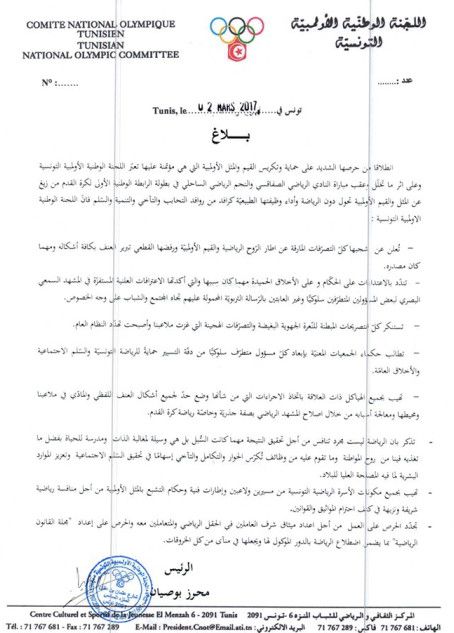 COMITE NATIONAL OLYMPIQUE
TUNISIEN
TUNISIAN
NATIONAL OLYMPIC COMMITTEE
اللجنة الوطنية الأولمبية
التونسية
N° :.......
عدد :........
Tunis, le 0 2 MARS 2017 تونس في
بـــلاغ
انطلاقا من حرصها الشديد على حماية وتكريس القيم والمثل الأولمبية التي هي مؤتمنة عليها تعبّر اللجنة الوطنية الأولمبية التونسية
وعلى اثر ما تخلّل وعقب مباراة النادي الرياضي الصفاقسي والنجم الرياضي الساحلي في بطولة الرابطة الوطنية الأولى لكرة القدم من زيغ
عن المثل والقيم الأولمبية تحول دون الرياضة وأداء وظيفتها الطبيعيّة كرافد من روافد التحابب والتآخي والتنمية والسلم فانّ اللجنة الوطنية
الاولمبية التونسية :
– تُعلن عن شجبها كلّ التصرّفات المارقة عن اطار الرّوح الرياضية والقيم الأولمبيّة ورفضها القطعي تبرير العنف بكافة أشكاله ومهما
كان مصدره.
– تندّد بالاعتداءات على الحكّام وعلى الأخلاق الحميدة مهما كان سببها والتي أكدتها الاعترافات العلنية المستفزّة في المشهد السمعي
البصري لبعض المسؤولين المتطرّفين سلوكيّا وغير العابئين بالرسالة التربويّة المحمولة عليهم تجاه المجتمع والشباب على وجه الخصوص.
– تستنكر كلّ التصريحات المبطنة للنّعرة الجهوية البغيضة والتصرّفات الهجينة التي غزت ملاعبنا وأصبحت تهدّد النظام العام.
– تطالب حكماء الجمعيات المعنيّة بإبعاد كلّ مسؤول متطرّف سلوكيّا من دفّة التسيير حمايةً للرياضة التونسيّة والسّلم الاجتماعية
والأخلاق العامّة.
– تهيب بجميع الهياكل ذات العلاقة باتخاذ الاجراءات التي من شأنها وضع حدّ لجميع أشكال العنف اللفظي والمادّي في ملاعبنا
ومحيطها ومعالجة أسبابه من خلال اصلاح المشهد الرياضي بصفة جذريّة وخاصّة رياضة كرة القدم.
- تذكّر بان الرياضة ليست مجرد تنافس من أجل تحقيق النتيجة مهما كانت السّبل بل هي وسيلة لمغالبة الذات ومدرسة للحياة بفضل ما
تغذيه فينا من روح المواطنة وما تقوم عليه من وظائف تُكرّس الحوار والتكامل والتآخي إسهامًا في تحقيق السّلم الاجتماعية وتعزيز الموارد
البشرية لما فيه المصلحة العليا للبلاد.
- تهيب بجميع مكونات الأسرة الرياضية التونسية من مسيرين ولاعبين وإطارات فنية وحكام التشبع بالمثل الأولمبية من أجل منافسة رياضية
شريفة ونزيهة في كنف احترام المواثيق والقوانين.
- تجدّد الحرص على العمل من أجل اعداد ميثاق شرف العاملين في الحقل الرياضي والمتعاملين معه والحرص على إعداد "مجلة القانون
الرياضية" بما يضمن اضطلاع الرياضة بالدور الموكول لها ويجعلها في منأى من كل الخروقات.
الرئيس
محرز بوصيان
Centre Culturel et Sportif de la Jeunesse El Menzah 6 - 2091 Tunis المركز الثقافي والرياضي للشباب المنزه 6 -تونس 2091
Tél : 71 767 681 - Fax : 71 767 289 E-Mail : President.Cnot@Email.ati.tn : البريد الالكتروني 71 767 289 : فاكس - 71 767 681 : الهاتف